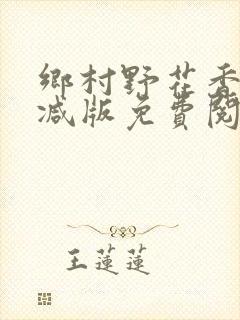 鄉村野花香
减版免費閱
王蓮蓮